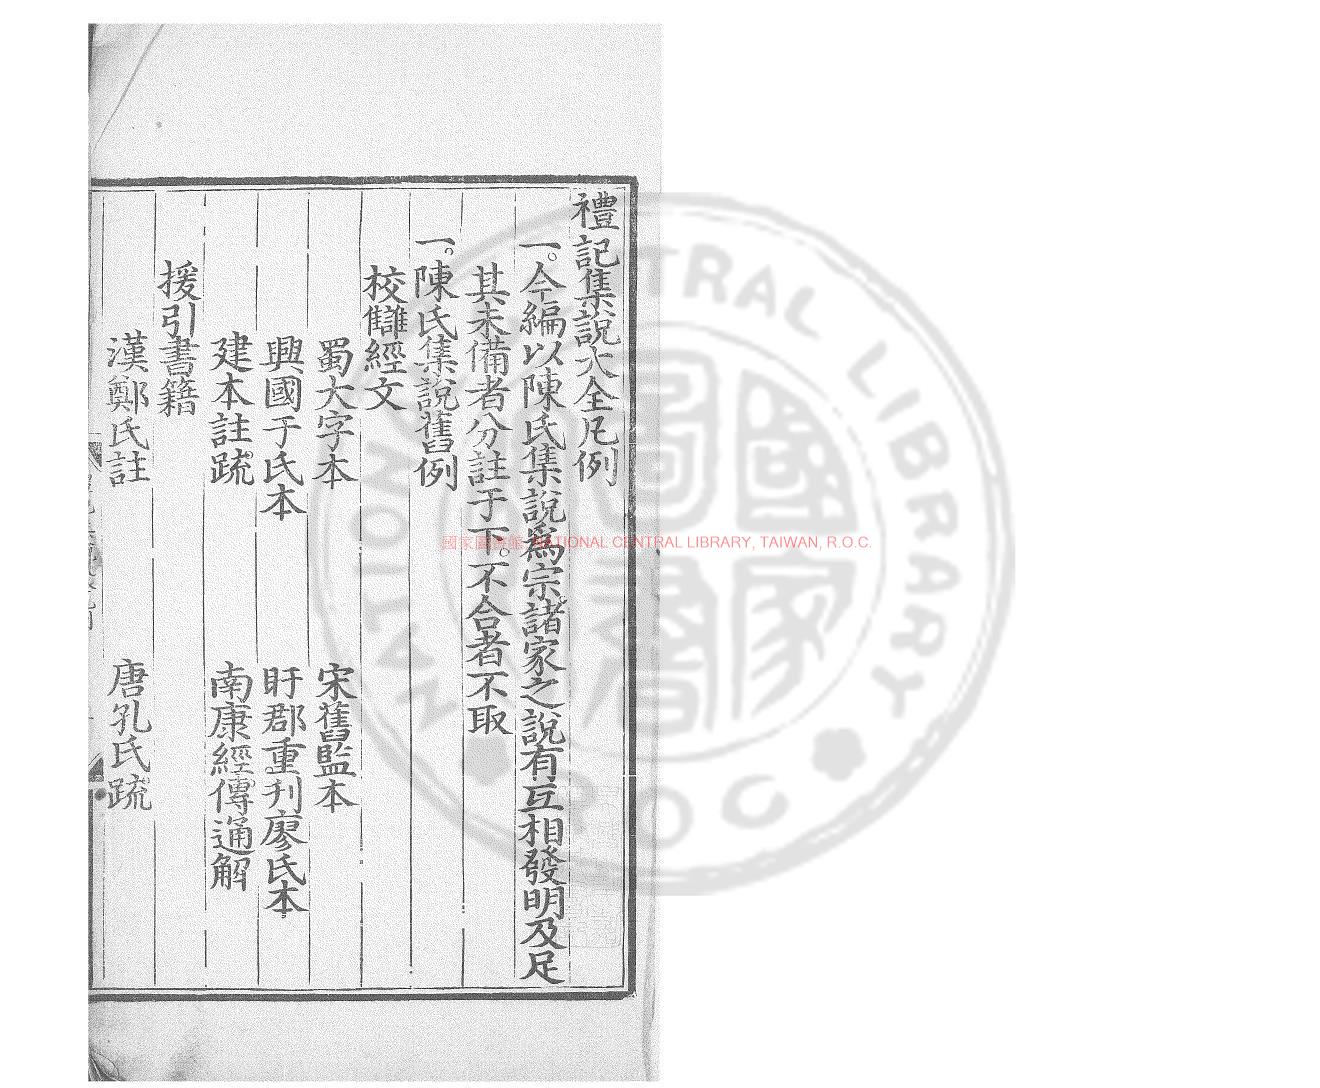 禮記集說大全凡例
一。今編以陳氏集說爲宗諸家之說有互相發明及足
其未備者分註于下。不合者不取
一。陳氏集說舊例
校讎經文
蜀大字本　宋舊監本
興國于氏本　盱郡重刋廖氏本
建本註䟽　南康經傳通解
援引書籍
漢鄭氏註　唐孔氏䟽
國家圖書館 NATIONAL CENTRAL LIBRARY, TAIWAN, R.O.C.
NATIONAL CENTRAL LIBRARY
ROC